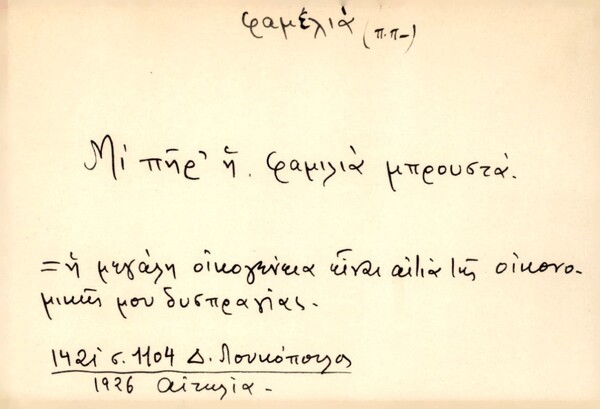 φαμέλιὰ (π.π-)
Μὶ πῆρ' ἡ φαμιλιὰ μπρουστά.
= ἡ μεγάλη οἰκογένεια εἶναι αἰτία τῆς οἰκονο-
μικῆς μου δυσπραγίας.
1421 σ. 1104 Δ. Λουκόπουλος
1926 Αἰτωλία -